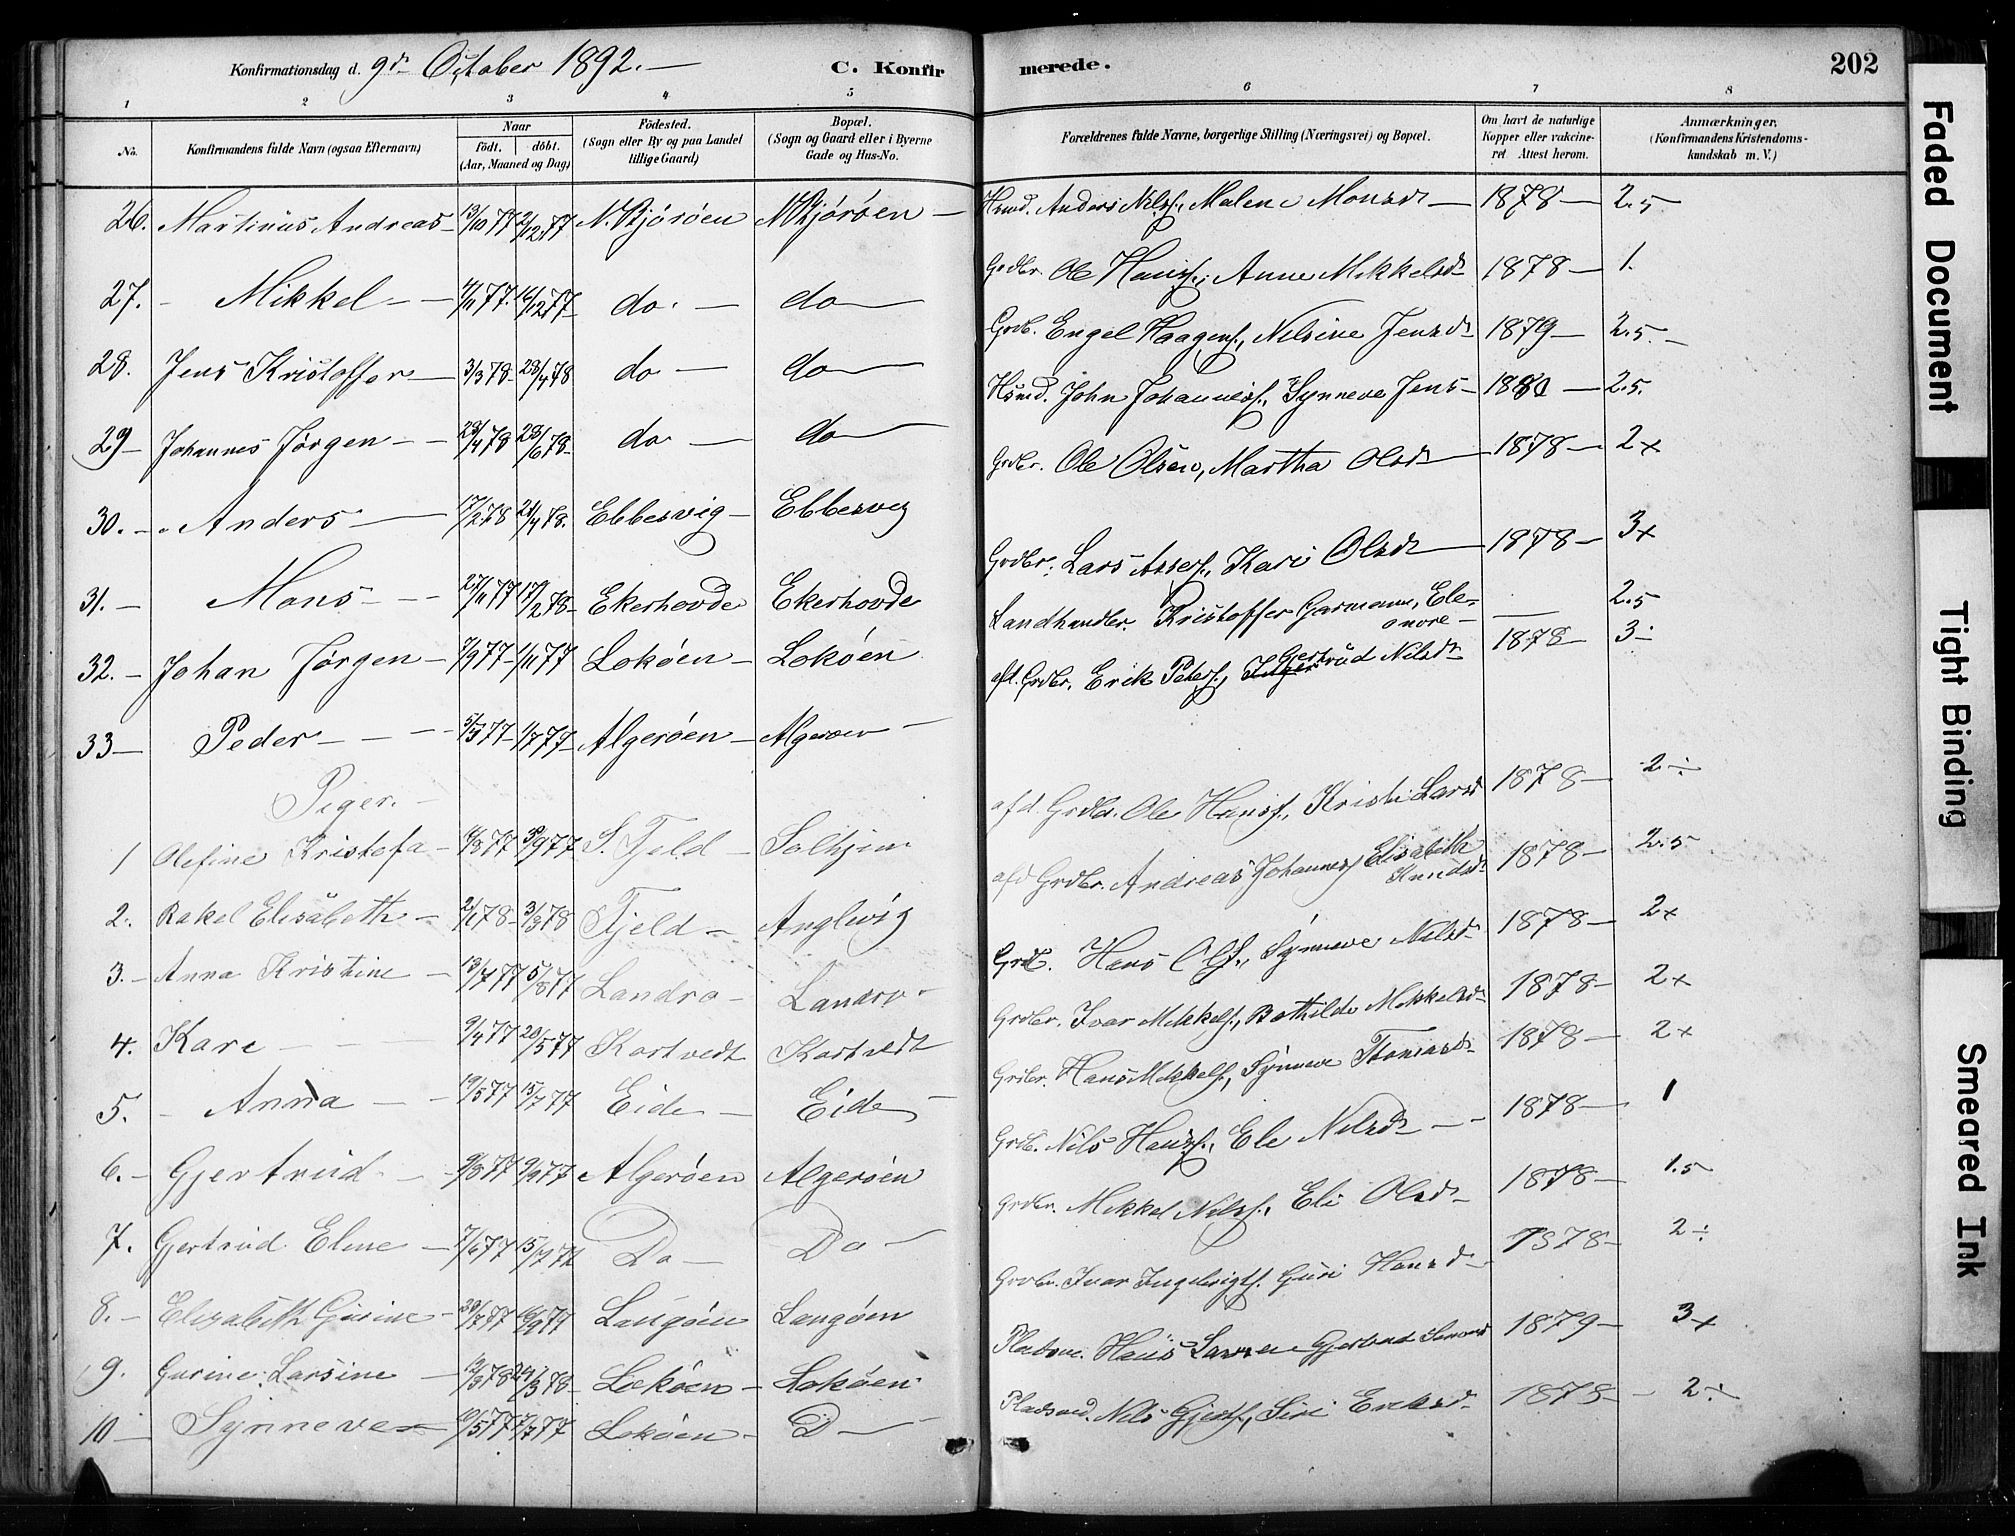 Konfirmationsdag d. 9de October 1892. — C. Konfirmerede. 202
1 2 3 4 5 6 7 8
No. Konfirmandens fulde Navn (ogsaa Efternavn) Naar født. døbt. (Aar, Maaned og Dag) Fødested. (Sogn eller By og paa Landet tillige Gaard) Bopæl. (Sogn og Gaard eller i Byerne Gade og Hus-No. Forældrenes fulde Navne, borgerlige Stilling (Næringsvei) og Bopæl. Om havt de naturlige Kopper eller vakcineret Attest herom. Anmærkninger, (Konfirmandens Kristendomskundskab m. V.)
26. Martinus Andreas 13/10 77 2/12 77 N. Bjørøen N Bjørøen — Hsmd. Anders Nilss., Malene Monsdt — 1878 — 2.5
27. Mikkel 4/11 77. 16/12 77 do. — do — Grdbr. Ole Hanss., Anne Mikkelsdt 1878 — 1.
28. Jens Kristoffer — 3/3 78 23/4 78 do — do — Grdb. Engel Haagens., Nilsine Jensdt 1879 — 2.5.
29 — Johannes Jørgen 23/4 78 23/6 78 do — do — Hsmd. John Johanness., Synneve Jens — 1880 — 2.5.
30. Anders 17/2 78 21/4 78. Ebbesvig — Ebbesvig Grdbr. Ole Olsen, Martha Olsdt 1878 — 2+
31. — Mons 27/11 77 17/2 78 Ekerhovde Ekerhovde Grdbr. Lars Anders., Kari Olsdt 1878 — 3+
32. — Johan Jørgen — 7/9 77 1/11 77 Lokøen — Lokøen Landhandler. Kristoffer Garmann, Eleonore — — 2.5
33 — Peder 5/5 77 1/7 77 Algerøen — Algerøen — afl. Grdbr. Erik Peters., Gjertrud Nilsdt 1878 — 3 ÷
Piger. —
1 Olefine Kristofa — 77 77 S. Fjeld — Solhjem afd. Grdbr. Ole Hanss., Kristi Larsd 1878 — 2 ÷
2. Rakel Elisabeth — 2/1 78 3/3 78 Fjeld — Anglevig afd Grdbr. Andreas Johanness Elisabeth Knudsdt 1878 — 2.5
3. — Anna Kristine — 13/7 77 5/8 77 Landro — Landro — Grdb. Hans Ols., Synneve Nilsdt 1878 — 2+
4. Kari 9/4 77 20/5 77 Kortvedt Kortvedt Grdbr. Ivar Mikkels., Bothilde Mikkelsdt 1878 — 2+
5. — Anna — 19/5 77 15/7 77 Eide — Eide — Grdbr. Hans Mikkels., Synneve Thomasdt 1878 — 2+
6. — Gjertrud 77 9/9 77 Algerøen Algerøen Grdb. Nils Hanss., Ele Nilsdt 1878 — 1
7. Gjertrud Eline — 7/6 77 15/7 77 Do — Do — Grdbr. Mikkel Nilss., Eli Olsdt 1878 — 1.5
8. — Elisabeth Gurine — 30/7 77 16/9 77 Langøen Langøen Grdbr. Ivar Ingebrigts. Guri Hansdt — 1878 — 2 ÷
9. Gurine Larsine — 12/3 78 24/3 78 Lokøen — Lokøen. Pladsm. Hans Gjertrud 1879 — 3+
10 — Synneve 10/5 77 1/7 77 Lokøen — D — Pladsmd. Nils Gjerts., Siri Eriksdt. 1878 — 2 ÷
Faded Document
Tight Binding
Smeared Ink